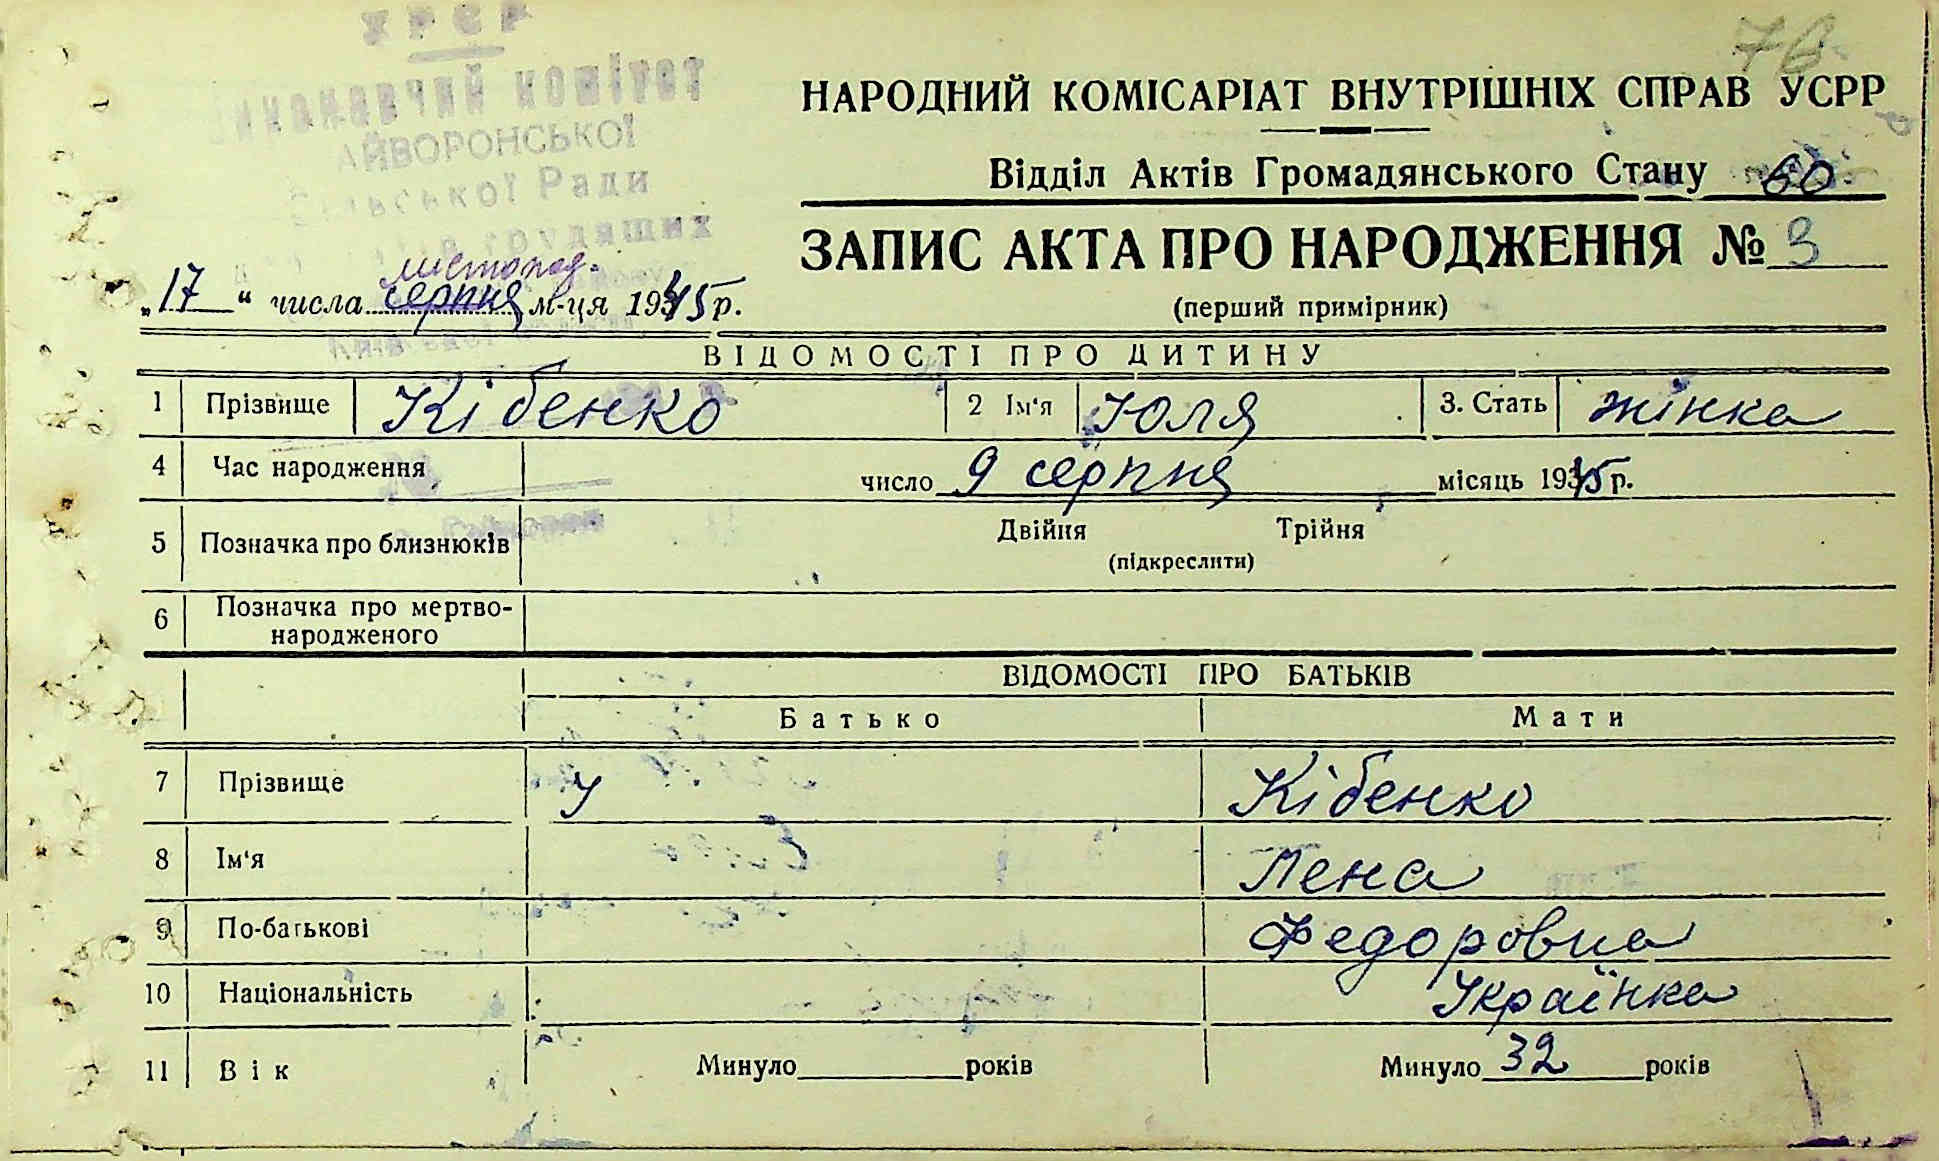 УРСР
Виконавчий комітет
АЙВОРОНСЬКОЇ
Сільської Ради
трудящих
НАРОДНИЙ КОМІСАРІАТ ВНУТРІШНІХ СПРАВ УСРР
Відділ Актів Громадянського Стану 60
ЗАПИС АКТА ПРО НАРОДЖЕННЯ № 3
(перший примірник)
листопад.
„17“ числа серпня м-ця 1945 р.
ВІДОМОСТІ ПРО ДИТИНУ
1 Прізвище Кібенко 2 Ім'я Юля 3. Стать жінка
4 Час народження число 9 серпня місяць 1945 р.
5 Позначка про близнюків Двійня Трійня
(підкреслити)
6 Позначка про мертво-
народженого
ВІДОМОСТІ ПРО БАТЬКІВ
Батько Мати
7 Прізвище У Кібенко
8 Ім'я Лена
9 По-батькові Федоровна
10 Національність Українка
11 Вік Минуло років Минуло 32 років